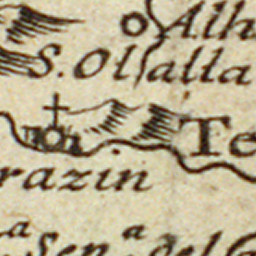 Alh
S. Olſalla
Te
razin
a Sen. a del G